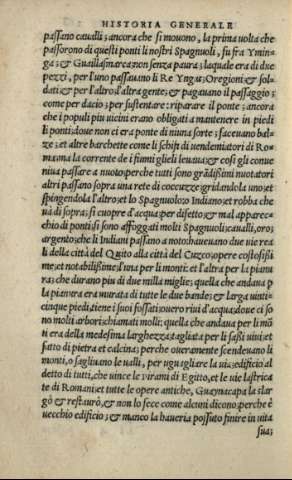 HISTORIA GENERALE
passano cavalli; ancora che si movono, la prima volta che
passorono di questi ponti li nostri Spagnuoli, fu fra Ymin-
ga; & Guaillasmarca non senza paura; laquale era di due
pezzi, per l'uno passavano li Re Yngas; Oregioni & sol-
dati & per l'altro l'altra gente; & pagavano il passaggio;
come per dacio; per sustentare: riparare il ponte; ancora
che i populi piu vicini erano obligati a mantenere in piedi
li ponti: dove non ci era ponte di niuna sorte; facevano bal-
ze; et altre barchette come li schifi de vendemiatori di Ro-
ma: ma la corrente de i fiumi glieli levava; & cosi gli conve
niva passare a nuoto: perche tutti sono grãdissimi nuotatori
altri passano sopra una rete di coccuzze: gridandola uno; et
spingendola l'altro: et lo Spagnuolo: o Indiano: et robba che
và di sopra; si cuopre d'acqua: per difetto; & mal apparec-
chio di ponti: si sono affogati molti Spagnuoli: cavalli, oro;
argento; che li Indiani passano a noto: havevano due vie rea
li della città del Quito alla città del Cuzco; opere costosissi
me; et notabilissime; l'una per li monti: et l'altra per la pianu
ra; che durano piu di due milla miglie; quella che andava p
la pianura era murata di tutte le due bande; & larga vinti-
cinque piedi; tiene i suoi fossati: overo rivi d'acqua; dove ci so
no molti arbori: chiamati molli: quella che andava per li mõ
ti era della medesima larghezza; tagliata per li sassi vivi; et
fatto di pietra et calcina; perche overamente scendevano li
monti, o sagliano le valli, per uguagliare la via: edificio al
detto di tutti, che vince le pirami di Egitto, et le vie lastrica
te di Romani: et tutte le opere antiche, Guaynacapa la slar
gò & restaurò, & non lo fece come alcuni dicono: perche è
vecchio edificio; & manco la haveria possuto finire in vita
sua;